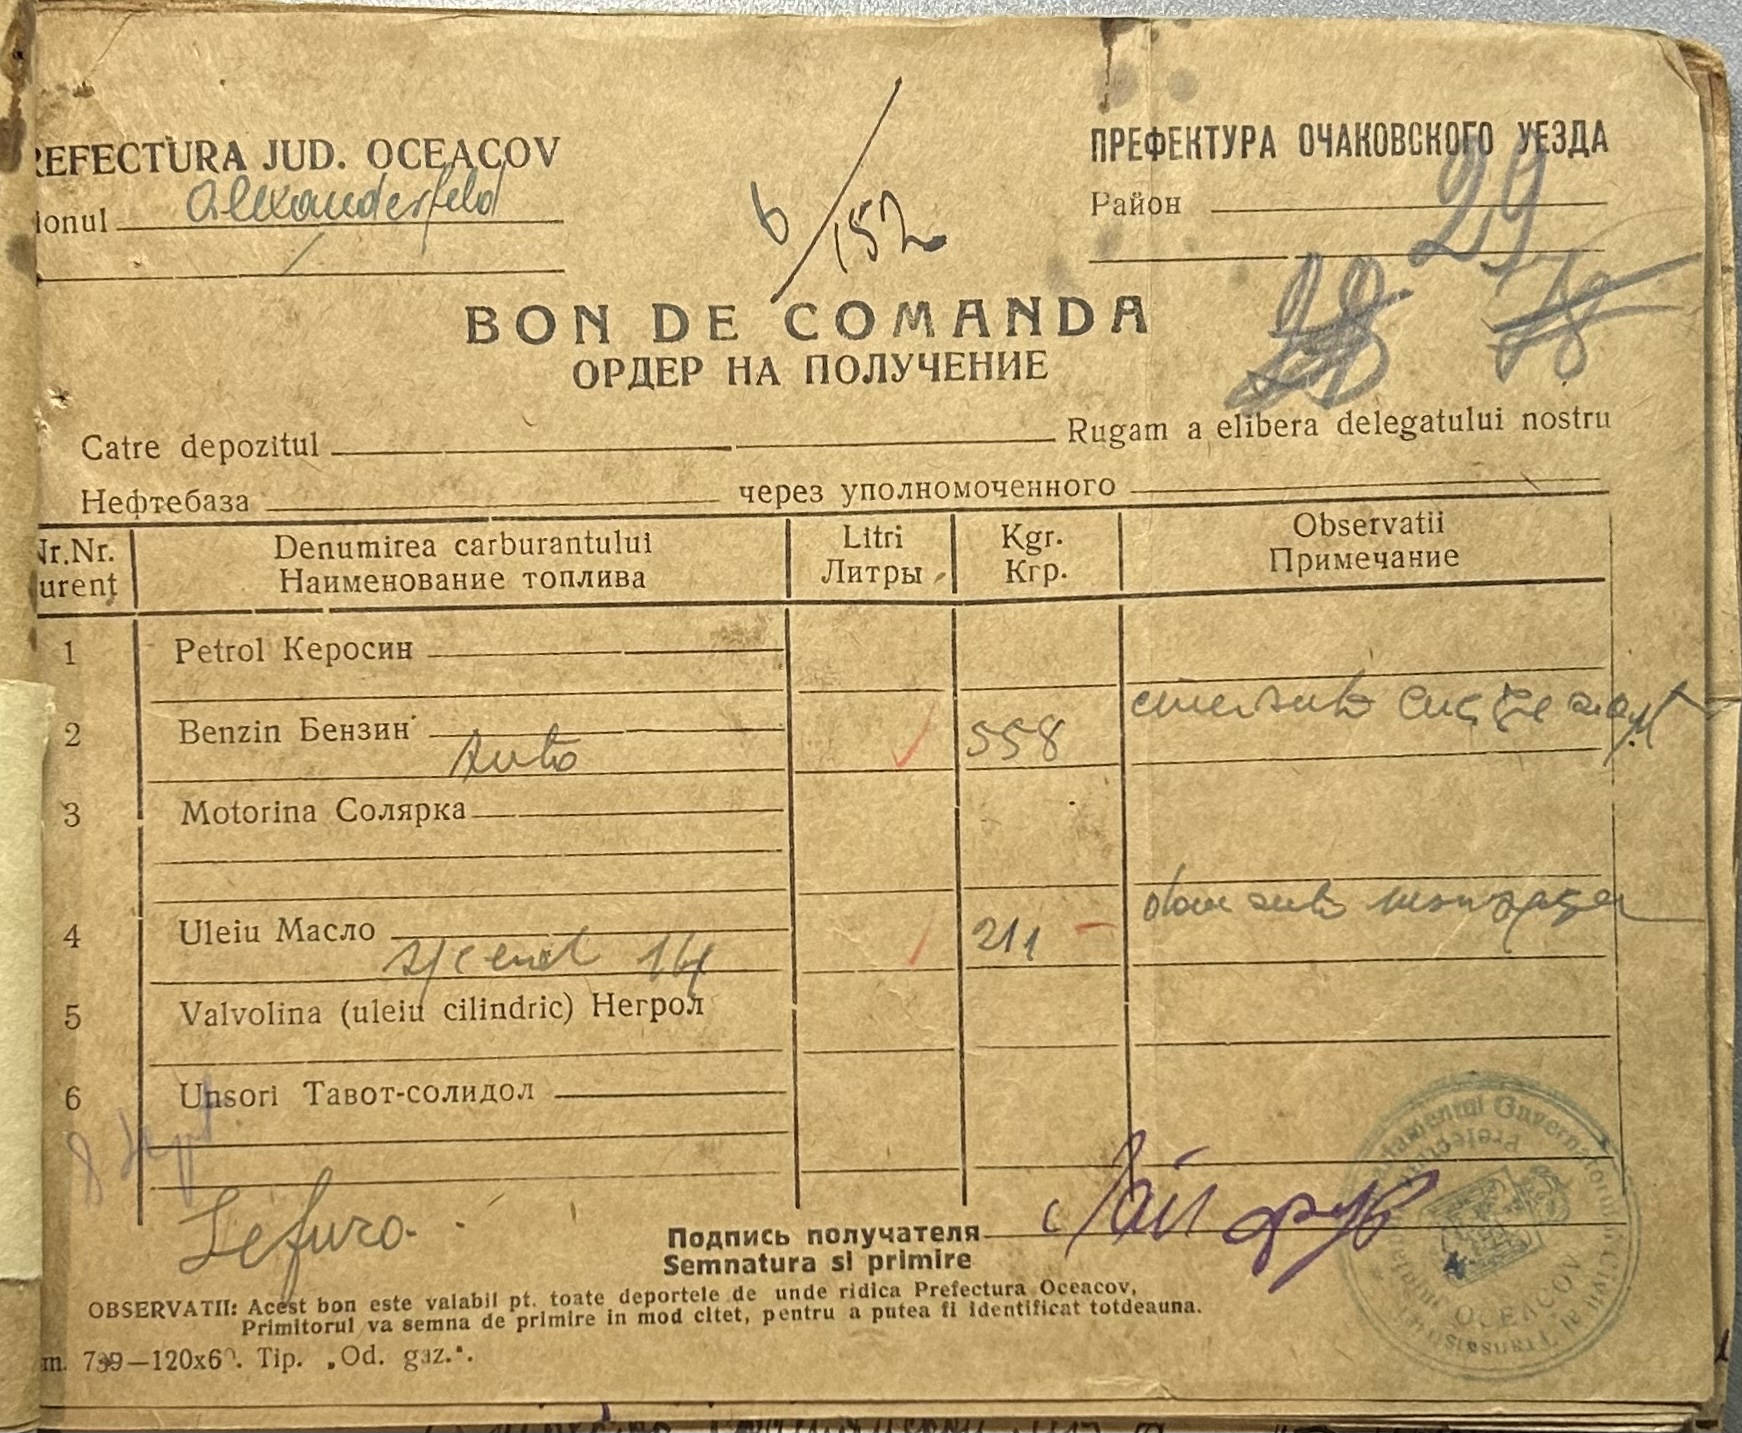 REFECTURA JUD. OCEACOV
ionul Alexanderfeld
6/152
ПРЕФЕКТУРА ОЧАКОВСКОГО УЕЗДА
Район
29
28 78
BON DE COMANDA
ОРДЕР НА ПОЛУЧЕНИЕ
Catre depozitul Rugam a elibera delegatului nostru
Нефтебаза через уполномоченного
Nr.Nr. urent Denumirea carburantului Litri Kgr. Observatii
Наименование топлива Литры Кгр. Примечание
1 Petrol Керосин
2 Benzin Бензин auto 558
3 Motorina Солярка
4 Uleiu Масло 211
5 Valvolina (uleiu cilindric) Негрол
6 Unsori Тавот-солидол
8 Sept
Подпись получателя
Semnatura si primire
OBSERVATII: Acest bon este valabil pt. toate deportele de unde ridica Prefectura Oceacov,
Primitorul va semna de primire in mod citet, pentru a putea fi identificat totdeauna.
m. 739—120x60. Tip. „Od. gaz.".
Guvernatorul Civil al Transnistriei
Prefectura
OCEACOV